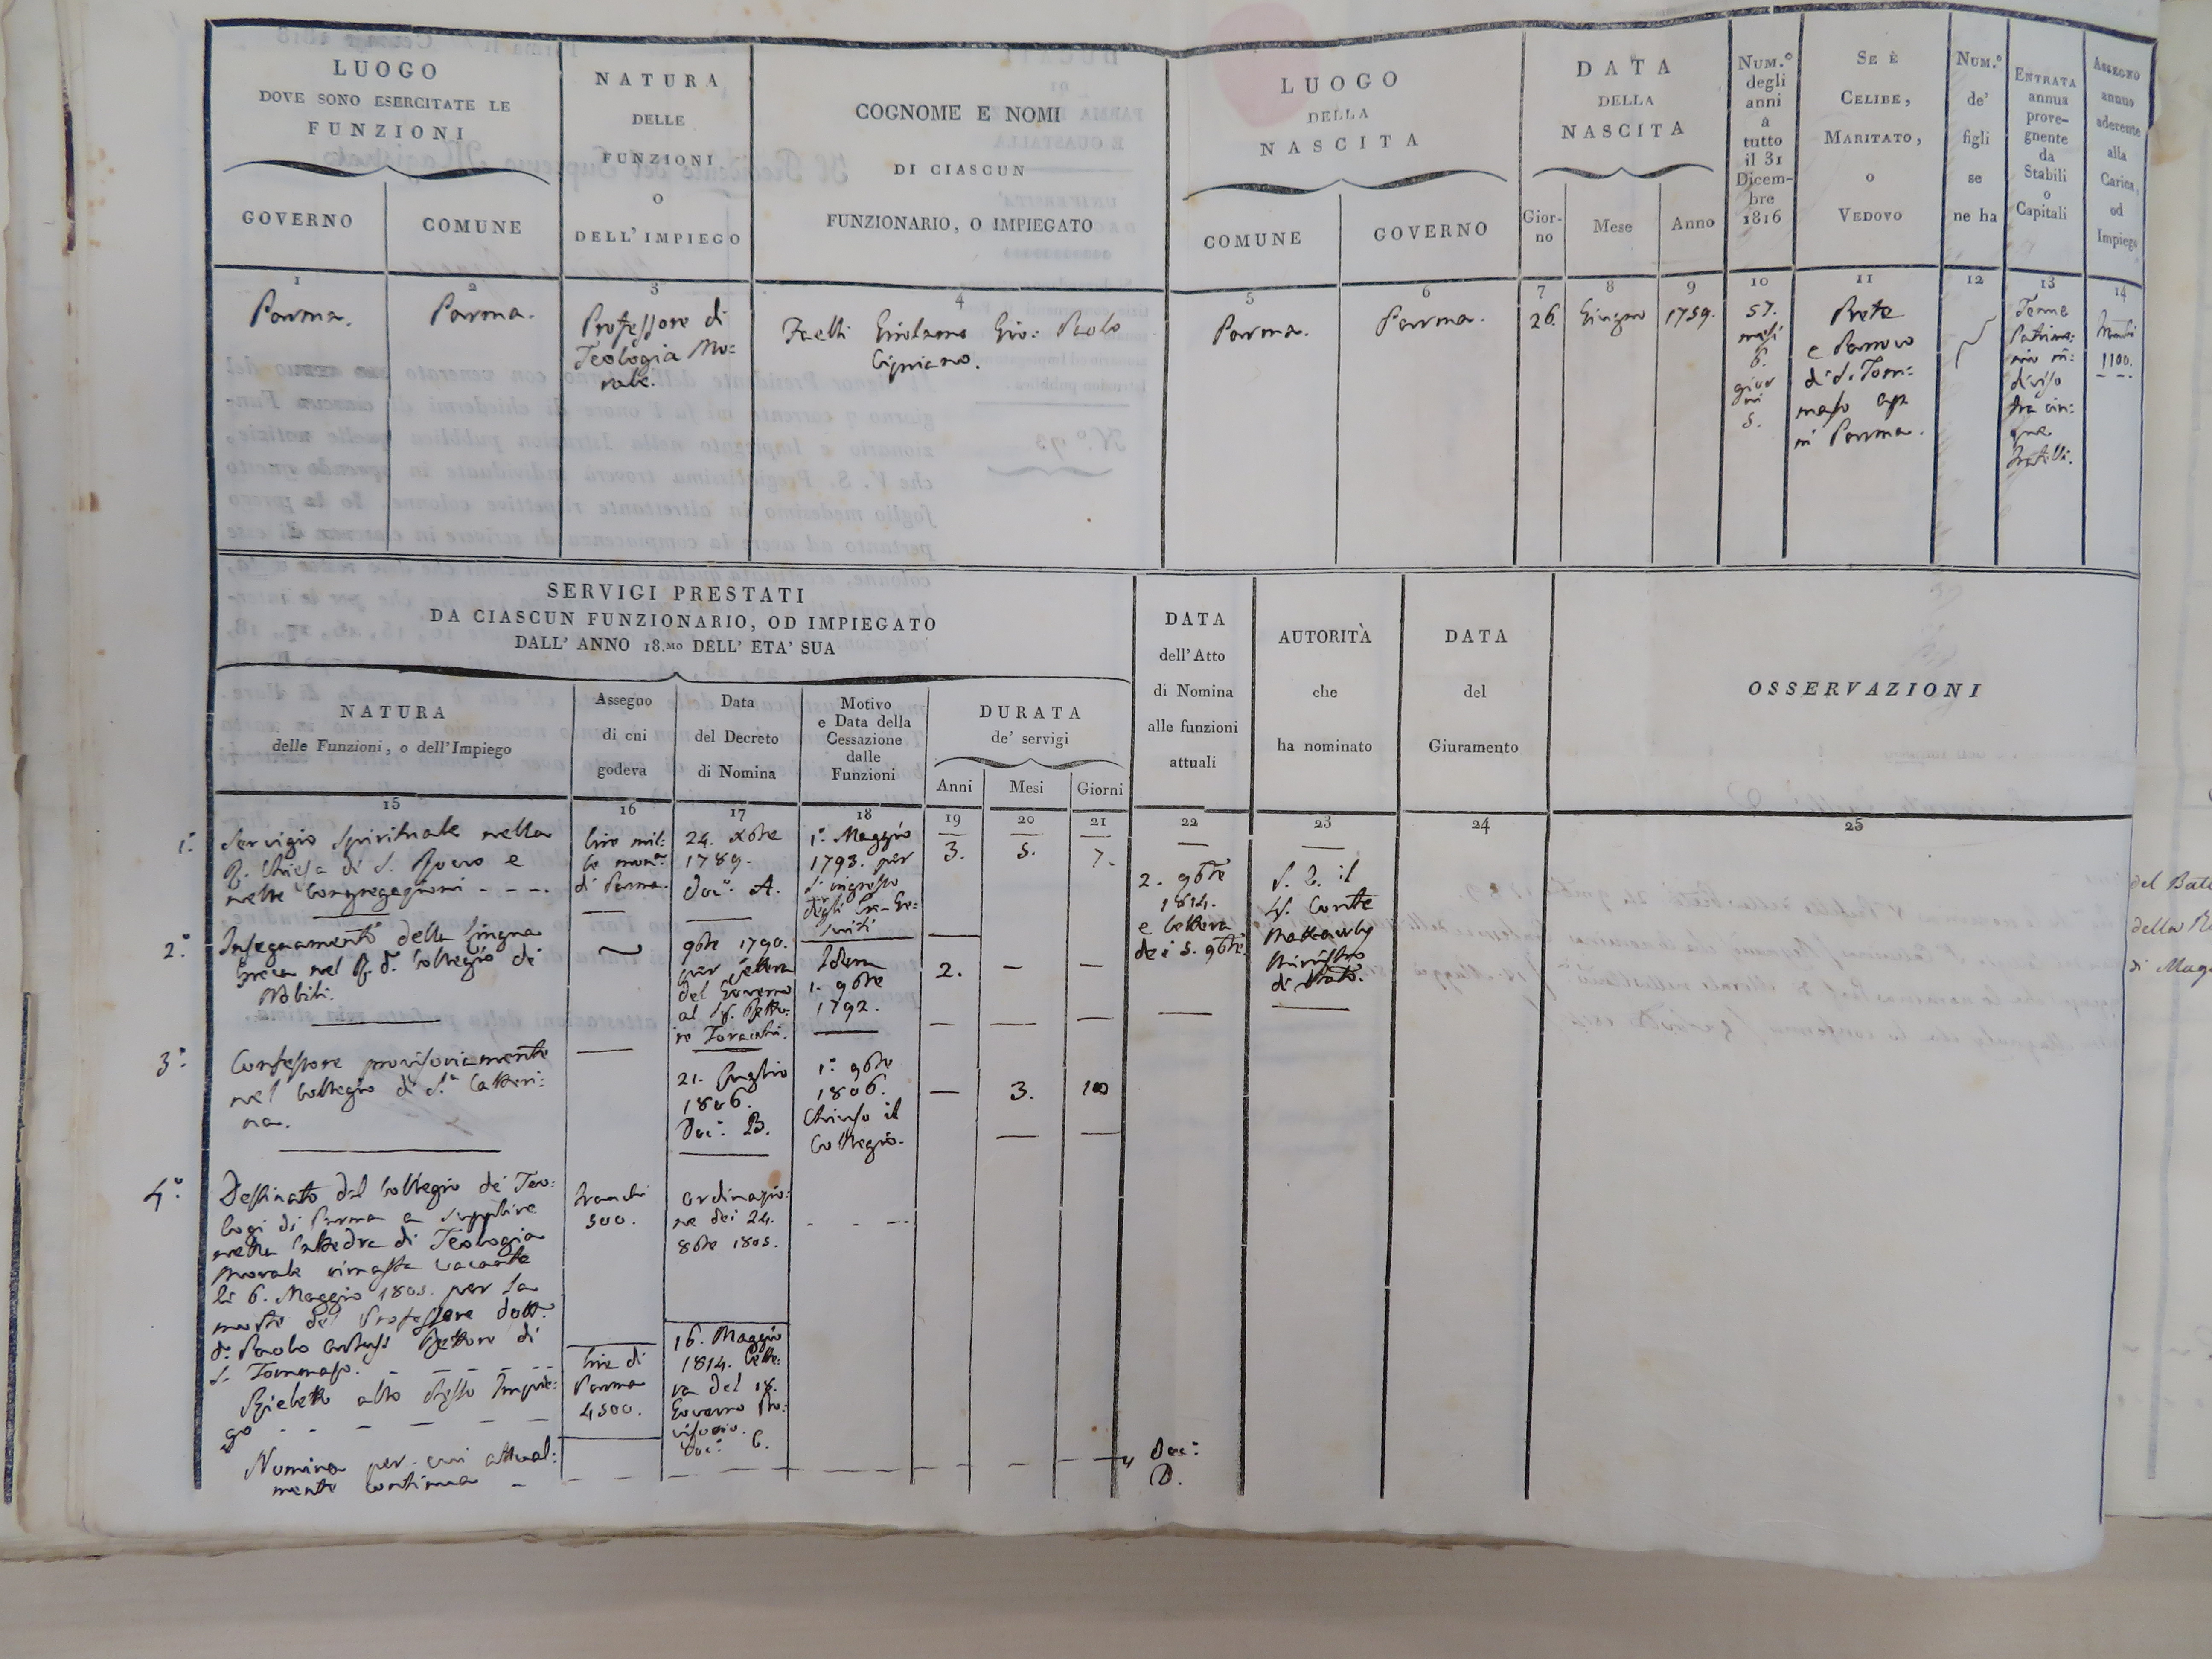 LUOGO
DOVE SONO ESERCITATE LE
FUNZIONI
GOVERNO
COMUNE
NATURA
DELLE
FUNZIONI
O
DELL' IMPIEGO
COGNOME E NOMI
DI CIASCUN
FUNZIONARIO, O IMPIEGATO
LUOGO
DELLA
NASCITA
COMUNE
GOVERNO
DATA
DELLA
NASCITA
Gior-
no
Mese
Anno
NUM.º
degli
anni
a
tutto
il 31
Dicem-
bre
1816
SE È
CELIBE,
MARITATO,
O
VEDOVO
NUM.º
de'
figli
se
ne ha
ENTRATA
annua
prove-
gnente
da
Stabili
o
Capitali
ASSEGNO
annuo
aderente
alla
Carica,
od
Impiego
1
2
3
4
5
6
7
8
9
10
11
12
13
14
Parma.
Parma.
Professore di
Teologia Mo:
rale.
Faelli Girolamo Gio: Paolo
Cipriano.
Parma.
Parma.
26.
Giugno
1759.
57.
mesi
6.
gior
ni
5.
Prete
e Parroco
di S. Tom:
maso Ap.
in Parma.
Tenue
Patrimo:
nio in:
diviso
tra cin:
que
fratelli.
franchi
1100.
SERVIGI PRESTATI
DA CIASCUN FUNZIONARIO, OD IMPIEGATO
DALL' ANNO 18.MO DELL' ETA' SUA
NATURA
delle Funzioni, o dell'Impiego
Assegno
di cui
godeva
Data
del Decreto
di Nomina
Motivo
e Data della
Cessazione
dalle
Funzioni
DURATA
de' servigi
Anni
Mesi
Giorni
DATA
dell'Atto
di Nomina
alle funzioni
attuali
AUTORITÀ
che
ha nominato
DATA
del
Giuramento
OSSERVAZIONI
15
16
17
18
19
20
21
22
23
24
25
1.º Servigio Spirituale nella
R. Chiesa di S. Rocco e
nelle Congregazioni - - -.
lire mil:
le mon.
di Parma.
24. Xbre
1789.
Doc.º A.
1.º Maggio
1793. per
l'ingresso
degli Ex-Ge:
suiti
3.
5.
7.
2. 9bre
1814.
e lettera
dei 5. 9bre.
S. E. il
Sig. Conte
Ministro
di Stato.
2.º Insegnamento della Lingua
Greca nel R. D. Collegio de
Nobili.
9bre 1790.
per lettera
del Governo
al Sig. Retto:
re
Idem
1. 9bre
1792.
2.
3.º Confessore provisoriamente
nel Collegio di S.ª Catteri:
na.
21. Luglio
1806.
Doc.º B.
1.º 9bre
1806.
Chiuso il
Collegio.
3.
10
4.º Destinato dal Collegio de' Teo:
logi di Parma a supplire
nella Cattedra di Teologia
Morale rimasta vacante
li 6. Maggio 1805. per la
morte del Professore Dott.
D. Paolo Rettore di
S. Tommaso.
franchi
500.
ordinazio:
ne dei 24.
8bre 1805.
Rieletto allo stesso Impie:
go
lire di
Parma
4500.
16. Maggio
1814. Lette:
ra del
Governo Pro:
visorio.
Doc.º C.
Nomina per cui attual:
mente continua
Doc.º
D.
della
di